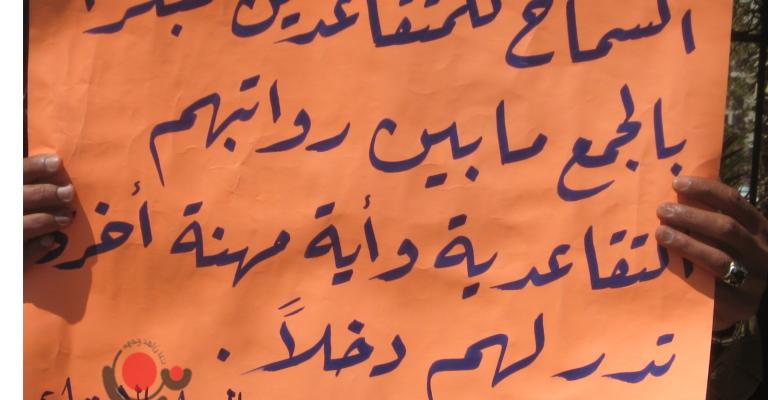 السماح للمتقاعدين مبكراً
بالجمع ما بين رواتبهم
التقاعدية وأية مهنة أخرى
تدر لهم دخلاً .